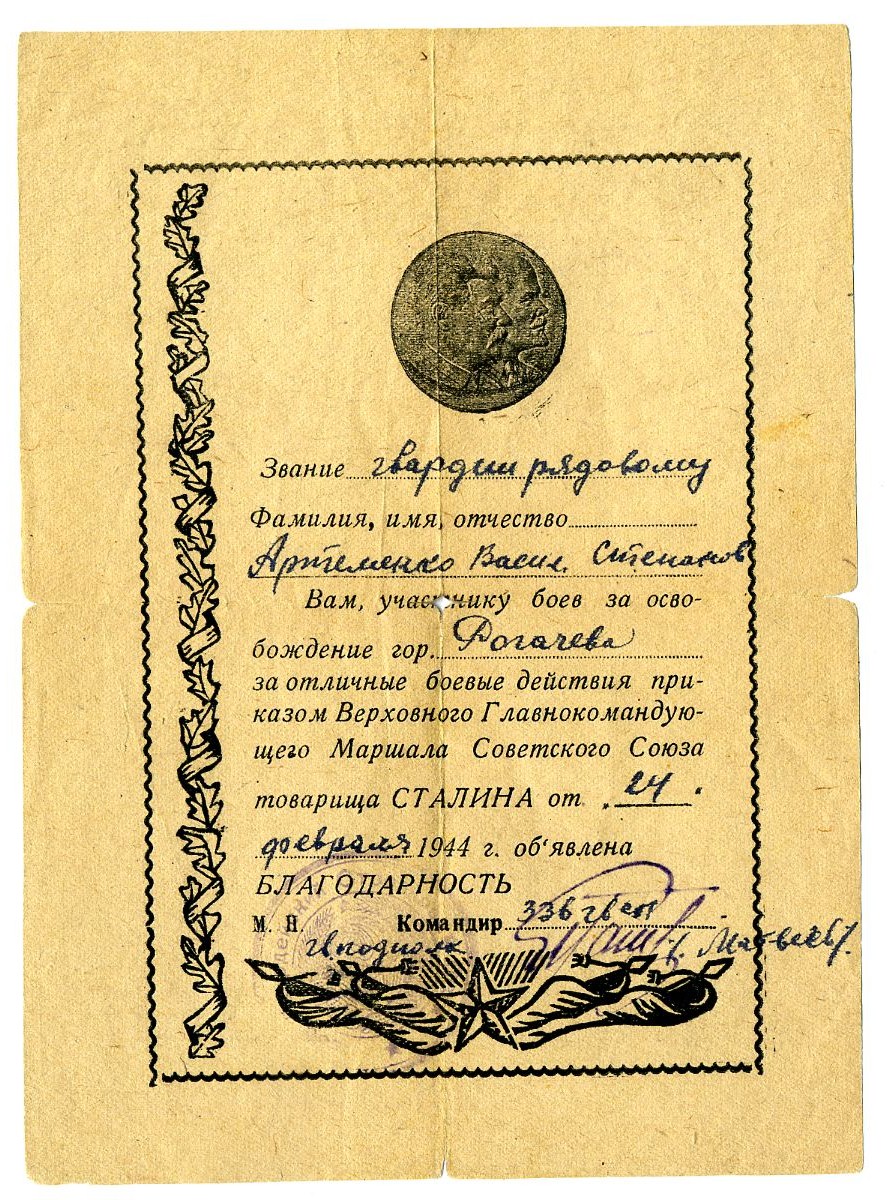 Звание гвардии рядовому
Фамилия, имя, отчество
Артеменко Васил. Степанов
Вам, участнику боев за осво-
бождение гор. Рогачева
за отличные боевые действия при-
казом Верховного Главнокомандую-
щего Маршала Советского Союза
товарища СТАЛИНА от „24"
февраля 1944 г. об'явлена
БЛАГОДАРНОСТЬ
М. П. Командир 336 гв сп
гв подполк. /Матвеев/.